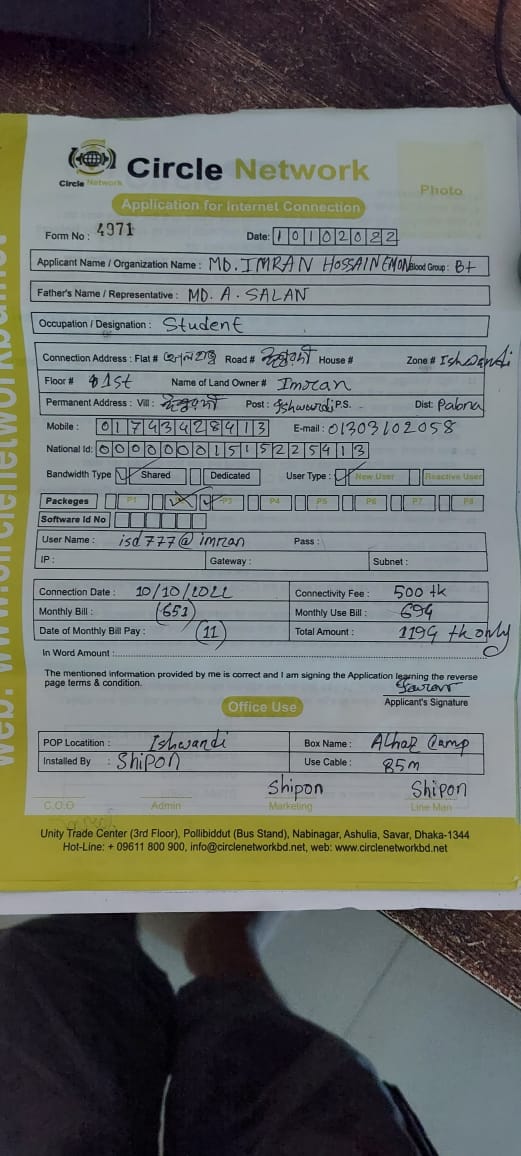 Circle Network
Circle Network
Photo
Application for Internet Connection
Form No : 4971 Date: 10102022
Applicant Name / Organization Name : MD. IMRAN HOSSAIN EMON Blood Group : B+
Father's Name / Representative : MD. A. SALAN
Occupation / Designation : Student
Connection Address : Flat # Road # House # Zone # Ishwandi
Floor # 1st Name of Land Owner # Imran
Permanent Address : Vill : Post : Ishwardi P.S. Dist: Pabna
Mobile : 01743428913 E-mail : 01303102058
National Id: 00000001515225413
Bandwidth Type Shared Dedicated User Type : New User Reactive User
Packeges P1 P3 P4 P5 P6 P7 P8
Software Id No
User Name : isd777@imran Pass :
IP : Gateway : Subnet :
Connection Date : 10/10/2022 Connectivity Fee : 500 tk
Monthly Bill : (651) Monthly Use Bill : 694
Date of Monthly Bill Pay : (11) Total Amount : 1194 tk only
In Word Amount :
The mentioned information provided by me is correct and I am signing the Application learning the reverse
page terms & condition.
Applicant's Signature
Office Use
POP Locatition : Ishwandi Box Name : Alhaz Camp
Installed By : Shipon Use Cable : 85m
Shipon Shipon
C.O.O Admin Marketing Line Man
Unity Trade Center (3rd Floor), Pollibiddut (Bus Stand), Nabinagar, Ashulia, Savar, Dhaka-1344
Hot-Line: + 09611 800 900, info@circlenetworkbd.net, web: www.circlenetworkbd.net
web: www.circlenetworkbd.net